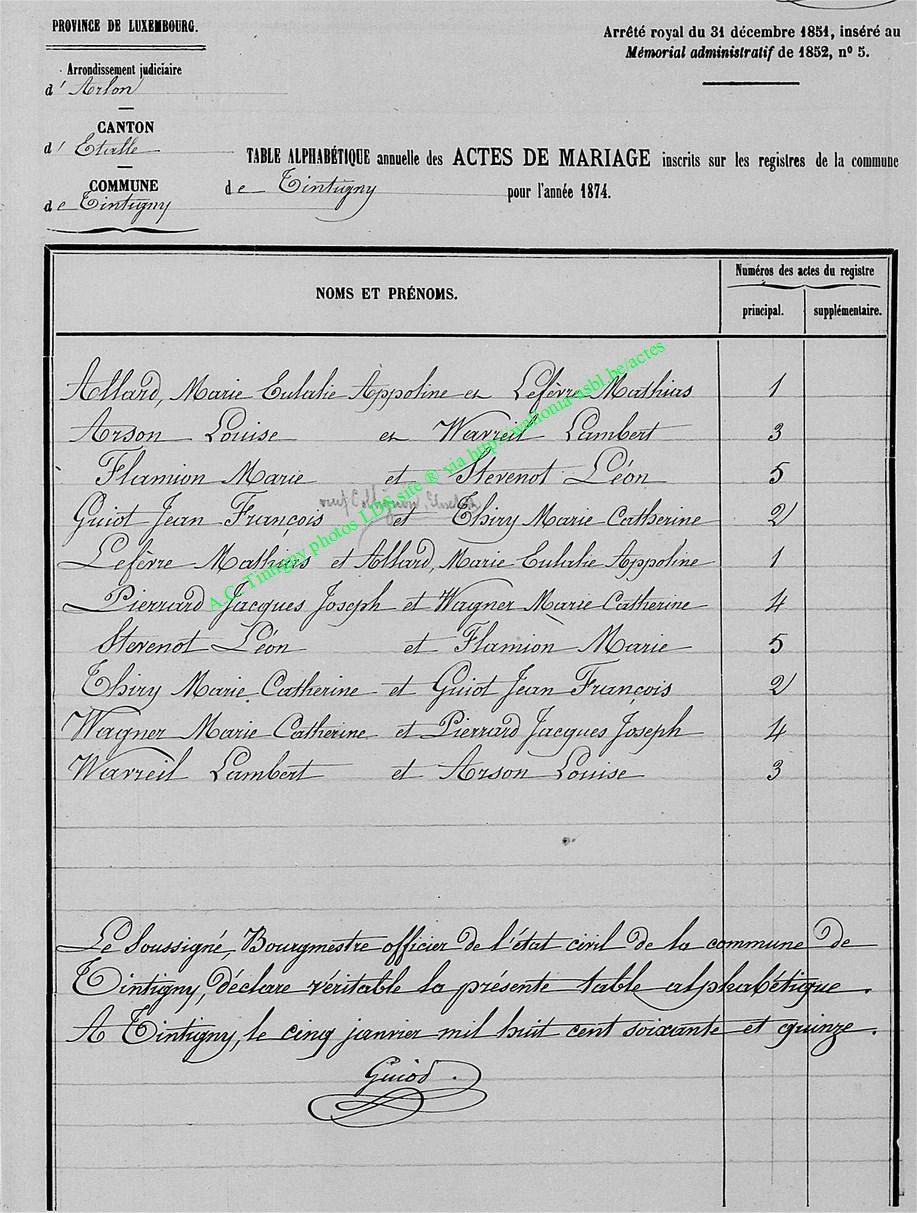 PROVINCE DE LUXEMBOURG.
Arrondissement judiciaire
d' Arlon
CANTON
d' Etalle
COMMUNE
de Tintigny
Arrêté royal du 31 décembre 1851, inséré au
Mémorial administratif de 1852, n° 5.
TABLE ALPHABÉTIQUE annuelle des ACTES DE MARIAGE inscrits sur les registres de la commune
de Tintigny pour l'année 1874.
NOMS ET PRÉNOMS.
Numéros des actes du registre
principal. supplémentaire.
Allard, Marie Eulalie Appoline et Lefèvre Mathias 1
Arson Louise et Warzeil Lambert 3
Flamion Marie et Stevenot Léon 5
veuf
Guiot Jean François et Thiry Marie Catherine 2
Lefèvre Mathias et Allard, Marie Eulalie Appoline 1
Pierrard Jacques Joseph et Wagner Marie Catherine 4
Stevenot Léon et Flamion Marie 5
Thiry Marie Catherine et Guiot Jean François 2
Wagner Marie Catherine et Pierrard Jacques Joseph 4
Warzeil Lambert et Arson Louise 3
A.C. Tintigny photos LDS site ® via http://wallonia-asbl.be/actes
Le Soussigné, Bourgmestre officier de l'état civil de la commune de
Tintigny, déclare véritable la présente table alphabétique.
A Tintigny, le cinq janvier mil huit cent soixante et quinze.
Guiod.